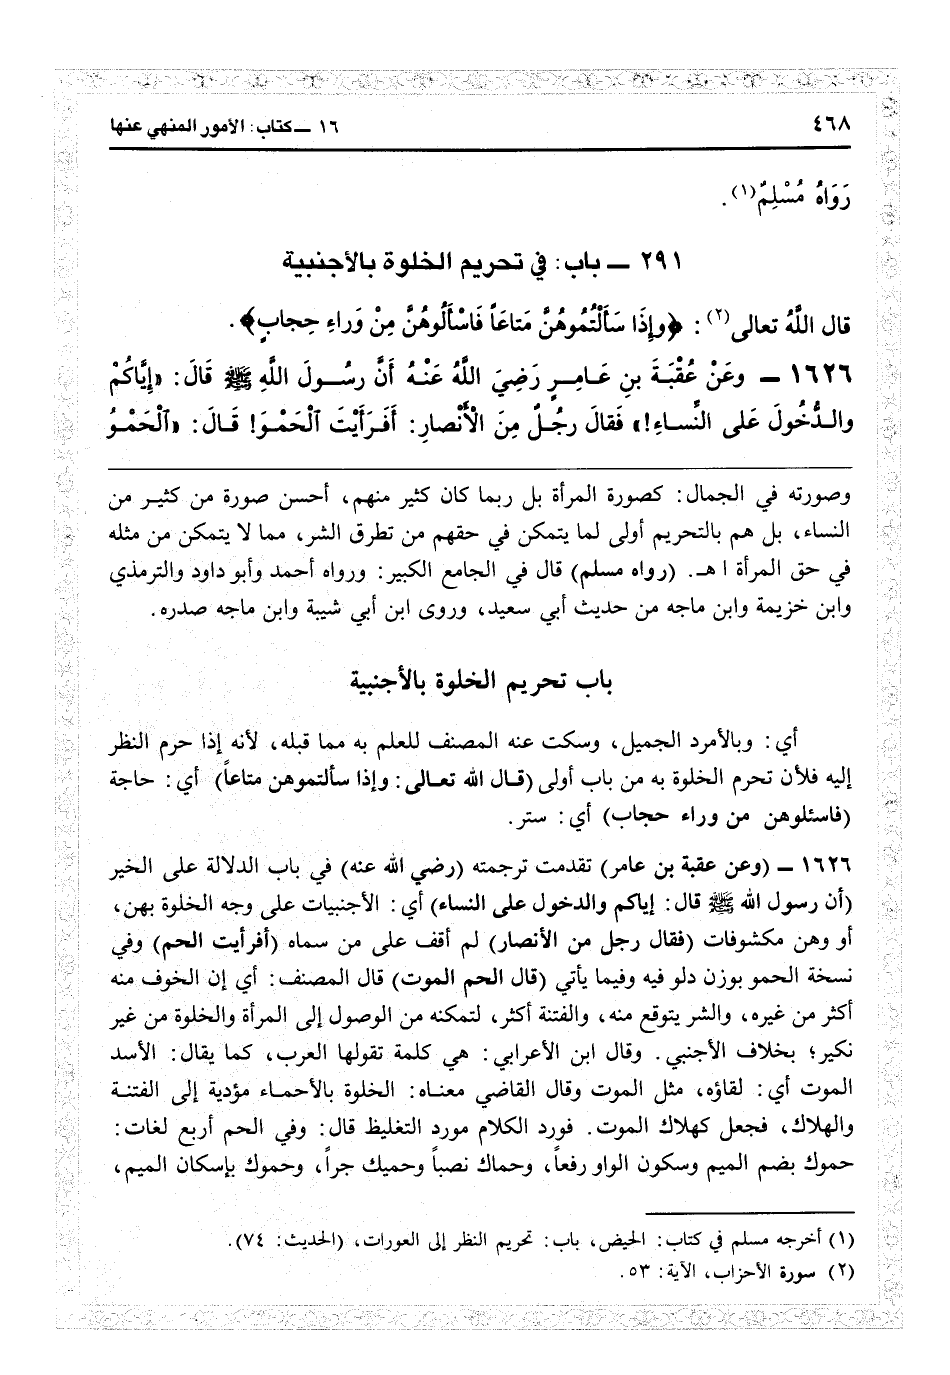 ٤٦٨
١٦ ــ كتاب: الأمور المنهي عنها
رَوَاهُ مُسْلِمٌ(١).
٢٩١ ــ باب: في تحريم الخلوة بالأجنبية
قال اللَّهُ تعالى(٢): ﴿وإِذَا سَأَلْتُمُوهُنَّ مَتاعَاً فَاسْأَلُوهُنَّ مِنْ وَراءِ حِجابٍ﴾.
١٦٢٦ ــ وعَنْ عُقْبَةَ بنِ عَامِرٍ رَضِيَ اللَّهُ عَنْهُ أَنَّ رسُولَ اللَّهِ ﷺ قَالَ: «إيَّاكُمْ
والدُّخُولَ عَلى النِّساءِ!» فَقالَ رجُلٌ مِنَ الأَنْصارِ: أَفَرَأَيْتَ ٱلْحَمْوَ! قَالَ: «ٱلْحَمْوُ
وصورته في الجمال: كصورة المرأة بل ربما كان كثير منهم، أحسن صورة من كثير من
النساء، بل هم بالتحريم أولى لما يتمكن في حقهم من تطرق الشر، مما لا يتمكن من مثله
في حق المرأة ا هـ. (رواه مسلم) قال في الجامع الكبير: ورواه أحمد وأبو داود والترمذي
وابن خزيمة وابن ماجه من حديث أبي سعيد، وروى ابن أبي شيبة وابن ماجه صدره.
باب تحريم الخلوة بالأجنبية
أي: وبالأمرد الجميل، وسكت عنه المصنف للعلم به مما قبله، لأنه إذا حرم النظر
إليه فلأن تحرم الخلوة به من باب أولى (قال الله تعالى: وإذا سألتموهن متاعاً) أي: حاجة
(فاسئلوهن من وراء حجاب) أي: ستر.
١٦٢٦ ــ (وعن عقبة بن عامر) تقدمت ترجمته (رضي الله عنه) في باب الدلالة على الخير
(أن رسول الله ﷺ قال: إياكم والدخول على النساء) أي: الأجنبيات على وجه الخلوة بهن،
أو وهن مكشوفات (فقال رجل من الأنصار) لم أقف على من سماه (أفرأيت الحم) وفي
نسخة الحمو بوزن دلو فيه وفيما يأتي (قال الحم الموت) قال المصنف: أي إن الخوف منه
أكثر من غيره، والشر يتوقع منه، والفتنة أكثر، لتمكنه من الوصول إلى المرأة والخلوة من غير
نكير؛ بخلاف الأجنبي. وقال ابن الأعرابي: هي كلمة تقولها العرب، كما يقال: الأسد
الموت أي: لقاؤه، مثل الموت وقال القاضي معناه: الخلوة بالأحماء مؤدية إلى الفتنة
والهلاك، فجعل كهلاك الموت. فورد الكلام مورد التغليظ قال: وفي الحم أربع لغات:
حموك بضم الميم وسكون الواو رفعاً، وحماك نصباً وحميك جراً، وحموك بإسكان الميم،
(١) أخرجه مسلم في كتاب: الحيض، باب: تحريم النظر إلى العورات، (الحديث: ٧٤).
(٢) سورة الأحزاب، الآية: ٥٣.